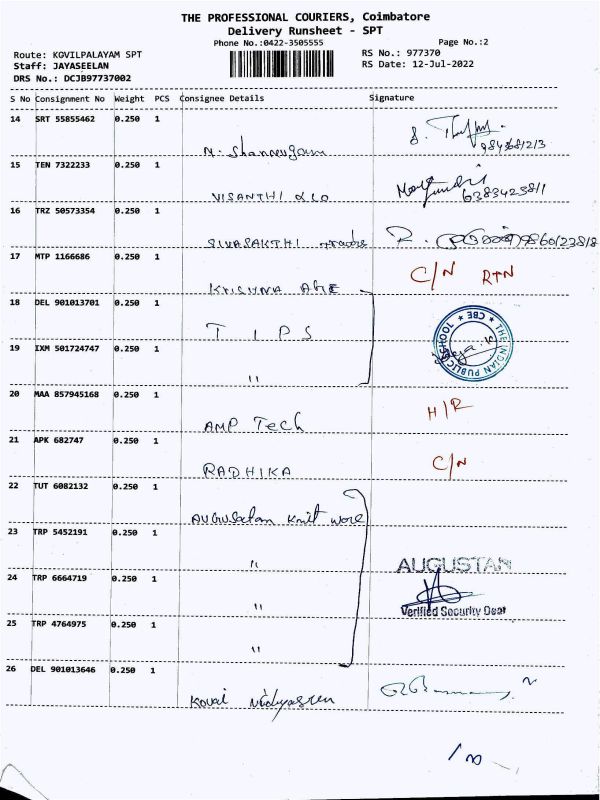 THE PROFESSIONAL COURIERS, Coimbatore
Delivery Runsheet - SPT
Phone No.:0422-3505555
Page No.:2
Route: KOVILPALAYAM SPT
RS No.: 977370
Staff: JAYASEELAN
RS Date: 12-Jul-2022
DRS No.: DCJB97737002
S No Consignment No Weight PCS Consignee Details Signature
14 SRT 55855462 0.250 1
N. Shanmugam
15 TEN 7322233 0.250 1
VISANTHI & CO 6383423811
16 TRZ 50573354 0.250 1
SIVASAKTHI
17 MTP 1166686 0.250 1
KRISHNA C/N RTN
18 DEL 901013701 0.250 1
T I P S
THE INDIAN PUBLIC SCHOOL ★ CBE ★
19 IXM 501724747 0.250 1
"
20 MAA 857945168 0.250 1
AMP Tech H/R
21 APK 682747 0.250 1
RADHIKA C/N
22 TUT 6082132 0.250 1
Augustan Knit
23 TRP 5452191 0.250 1
"
AUGUSTAN
24 TRP 6664719 0.250 1
"
Verified Security Dept
25 TRP 4764975 0.250 1
"
26 DEL 901013646 0.250 1
Kovai